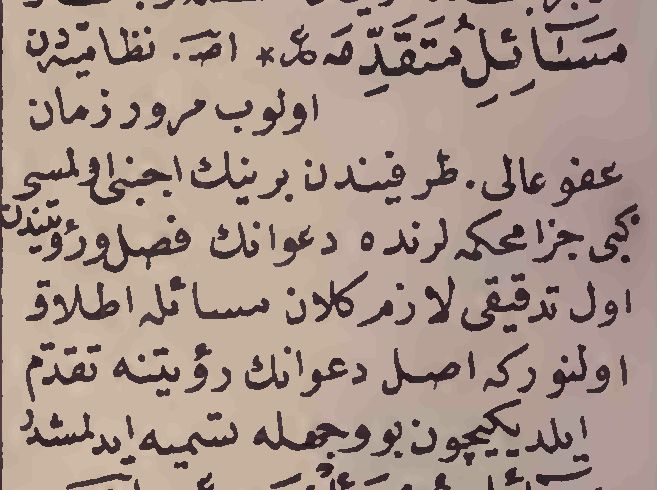 مَسَآئِلِ مُتَقَدِّمَه عر * اصـ. نظاميه دن
اولوب مرور زمان
عفو عالى. طرفيندن برينك اجنبى اولمسى
كبى جزا محكمه لرنده دعوانك فصل ورؤيتندن
اول تدقيقى لازم كلان مسائله اطلاق
اولنوركه اصل دعوانك رؤيتنه تقدّم
ايلديكيچون بو وجهله تسميه ايدلمشدر